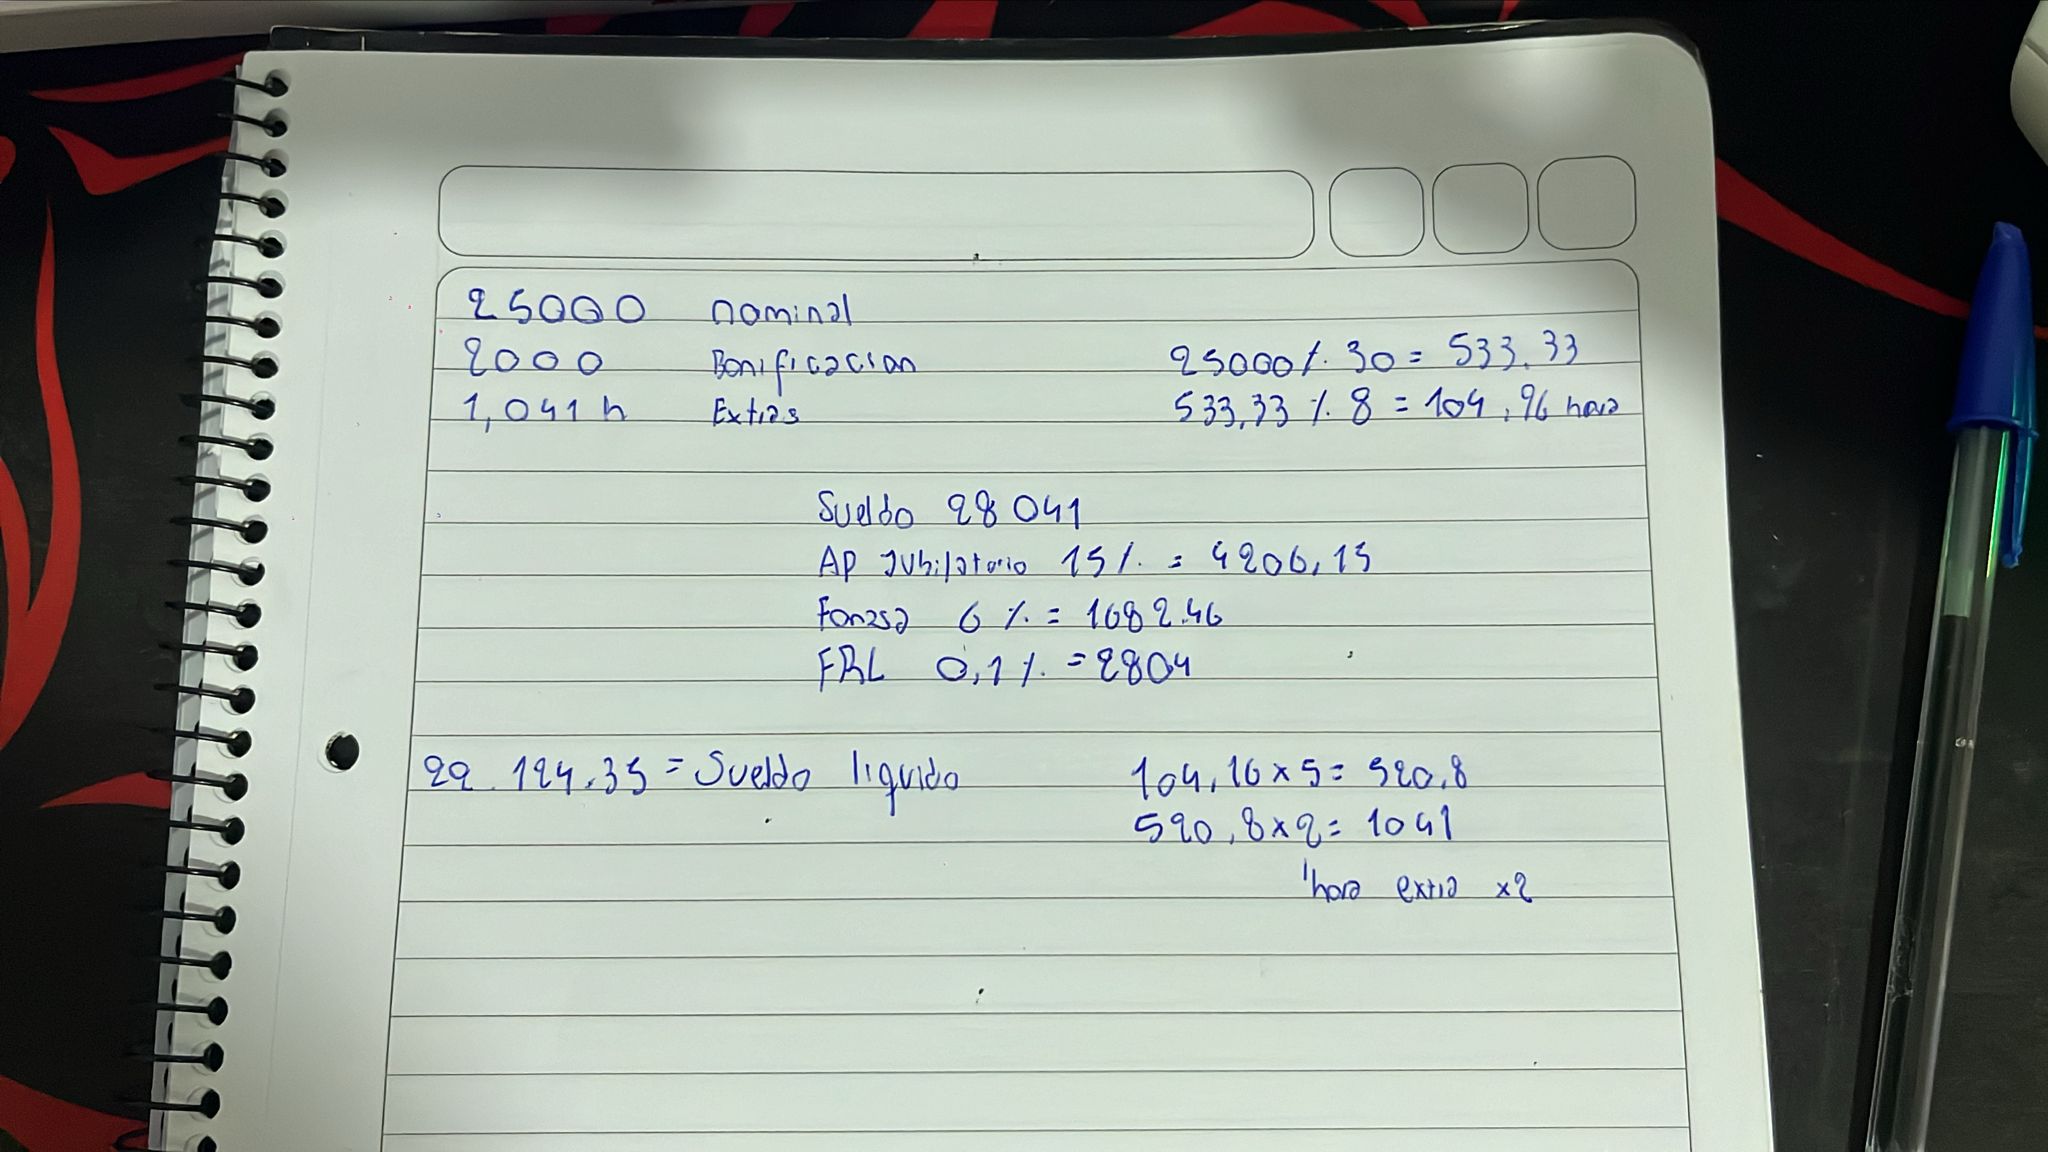 25000 nominal
2000 Bonificacion
1,041 h Extras
25000 % 30 = 533.33
533,33 % 8 = 104,96 hora
Sueldo 28 041
AP Jubilatorio 15 % = 4206,15
Fonasa 6 % = 1682.46
FRL 0,1 % = 2804
22.124.35 = Sueldo liquido
104,16 x 5 = 520.8
520,8 x 2 = 1041
hora extra x2